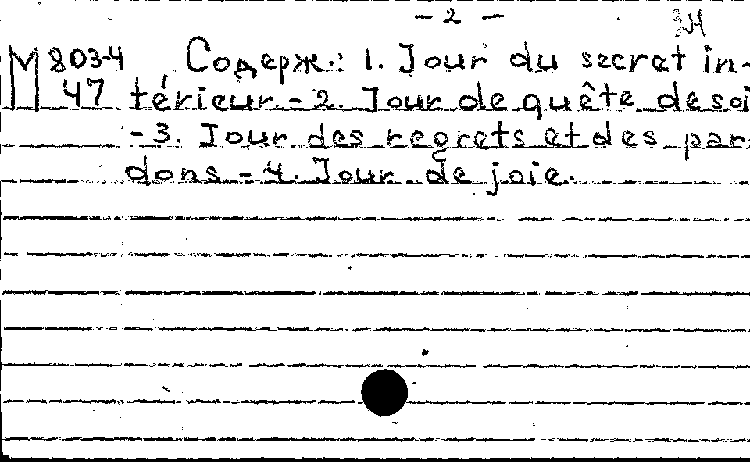 - 2 -
М 8034 Содерж.: 1. Jour du secret in-
47 térieur - 2. Jour de quête de soi
- 3. Jour des regrets et des par-
dons - 4. Jour de joie.